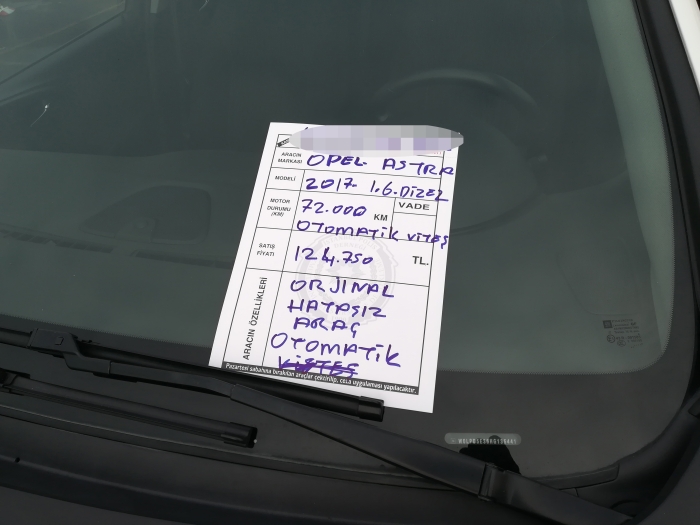 ARACIN MARKASI OPEL ASTRA
MODELİ 2017 1.6.DİZEL
MOTOR DURUMU (KM) 72.000 KM VADE
OTOMATİK VİTES
SATIŞ FİYATI 124.750 TL.
ARACIN ÖZELLİKLERİ
ORJINAL
HATASIZ
ARAÇ
OTOMATİK
VİTES
Pazartesi sabahına bırakılan araçlar çektirilip, ceza uygulaması yapılacaktır.